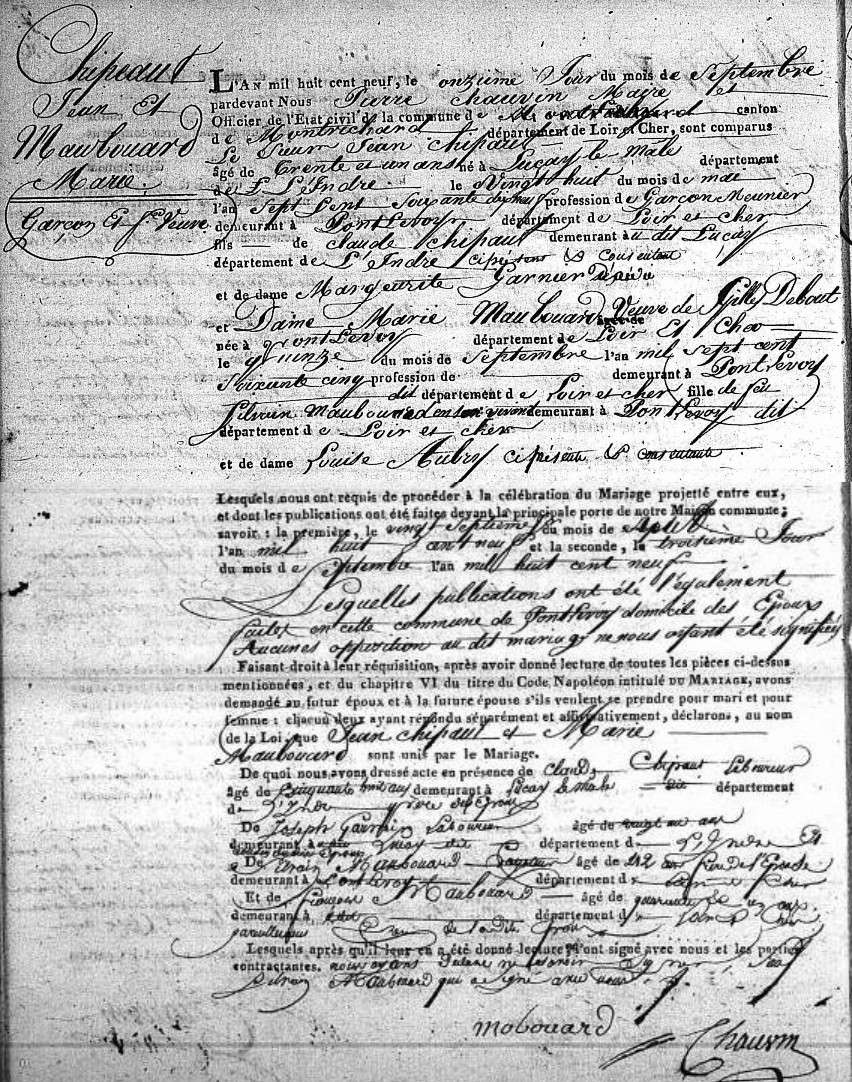 Chipeaut
Jean Et
Maubouard
Marie.
Garçon Et f.e Veuve
LAN mil huit cent neuf, le onzieme Jour du mois de Septembre
pardevant Nous Pierre Chauvin Maire et
Officier de l'Etat civil de la commune de canton
de Montrichard département de Loir et Cher, sont comparus
Le Sieur Jean Chipaut
âgé de trente et un ans né à Luçay le Male département
de L'Indre. le Vingt huit du mois de mai
l'an Sept Cent Soixante dix huit profession de Garçon Meunier
demeurant à PontLevoy département de Loir et cher
fils de claude Chipaut demeurant au dit Luçay
département de L'Indre ci présent & consentant
et de dame Margeurite Garnier
et Dame Marie Maubouard Veuve de Gilles Debout
née à Pontlevoy département de Loir Et Cher
le quinze du mois de Septembre l'an mil sept cent
Soixante cinq profession de demeurant à Pontlevoy
dit département de Loir et cher fille de feu
Silvain Maubouard en son vivant demeurant à Pontlevoy dit
département de Loir et cher
et de dame Louise Aubry ci présente & consentante
Lesquels nous ont requis de procéder à la célébration du Mariage projetté entre eux,
et dont les publications ont été faites devant la principale porte de notre Maison commune;
savoir: la première, le vingt Septieme du mois de
l'an mil huit cent neuf et la seconde, le troisième Jour
du mois de Septembre l'an mil huit cent neuf
Lesquelles publications ont été Légalement
faites en cette commune de Pontlevoy domicile des Epoux
Aucunes opposition au dit mariage ne nous ayant été signifiées
Faisant droit à leur réquisition, après avoir donné lecture de toutes les pièces ci-dessus
mentionnées, et du chapitre VI du titre du Code Napoléon intitulé DU MARIAGE, avons
demandé au futur époux et à la future épouse s'ils veulent se prendre pour mari et pour
femme: chacun deux ayant répondu séparément et affirmativement, déclarons, au nom
de la Loi, que Jean chipaut et Marie
Maubouard sont unis par le Mariage.
De quoi nous avons dressé acte en présence de Claude Chipaut Laboureur
âgé de Cinquante huit ans demeurant à Luçay le male dit département
de L'Indre père de l'Epoux
De Joseph Garnier Laboureur âgé de trente ans
demeurant à Luçay dit département de L'Indre Et
De Urain Maubouard âgé de 42 ans frere de l'Epouse
demeurant à Pontlevoy département de Loir et Cher
Et de François Maubouard âgé de quarante et un ans
demeurant à département de Loir et Cher
de la dite Epouse
Lesquels après qu'il leur en a été donné lecture l'ont signé avec nous et les parties
contractantes. Savoir Signer
Silvain Maubouard qui a signé avec nous
mobouard
Chauvin